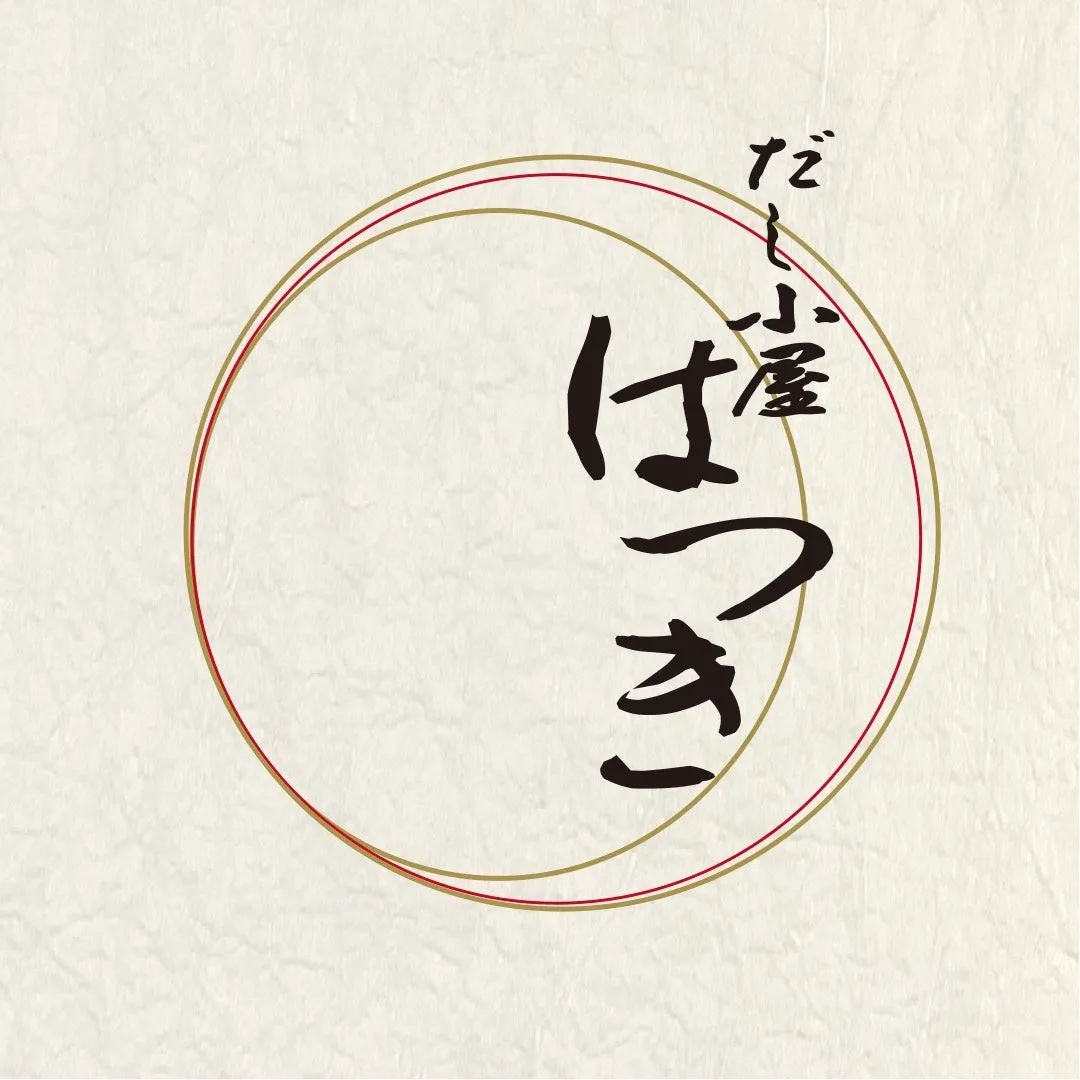 だし小屋
はつき